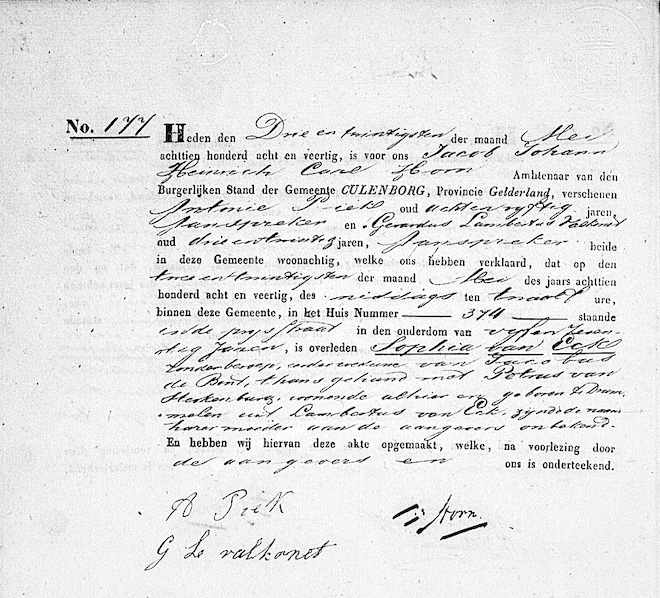 No. 177 Heden den Drie en twintigsten der maand Mei
achttien honderd acht en veertig, is voor ons Jacob Johann
Heinrich Carl Horn Ambtenaar van den
Burgerlijken Stand der Gemeente CULENBORG, Provincie Gelderland, verschenen
Antonie Piek oud acht en vyftig jaren,
Aanspreker en Gerardus Lambertus Valkonet
oud drie en twintig jaren, Aanspreker beide
in deze Gemeente woonachtig, welke ons hebben verklaard, dat op den
twee en twintigsten der maand Mei des jaars achttien
honderd acht en veertig, des middags ten twaalf ure,
binnen deze Gemeente, in het Huis Nummer 374 staande
in de prysstraat in den ouderdom van vyf en zeven-
tig Jaren, is overleden Sophia van Eck
zonder beroep, eerder weduwe van Jacobus
de Bint, thans gehuwd met Petrus van
Herkenburg, wonende alhier en geboren te Drum-
melen uit Lambertus van Eck, zynde de naam
harer moeder aan de aangevers onbekend.
En hebben wij hiervan deze akte opgemaakt, welke, na voorlezing door
de aangevers en ons is onderteekend.
A Piek Horn.
G L valkonet